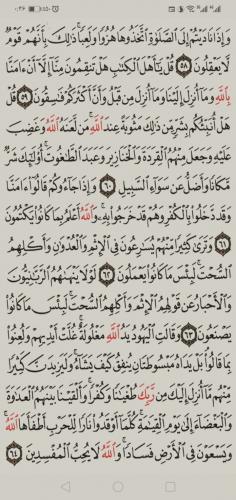 وَإِذَا نَادَيْتُمْ إِلَى الصَّلَوٰةِ اتَّخَذُوهَا هُزُوًا وَلَعِبًا ۚ ذَٰلِكَ بِأَنَّهُمْ قَوْمٌ
لَا يَعْقِلُونَ ٥٨ قُلْ يَٰٓأَهْلَ الْكِتَٰبِ هَلْ تَنقِمُونَ مِنَّآ إِلَّآ أَنْ ءَامَنَّا
بِاللَّهِ وَمَآ أُنزِلَ إِلَيْنَا وَمَآ أُنزِلَ مِن قَبْلُ وَأَنَّ أَكْثَرَكُمْ فَٰسِقُونَ ٥٩ قُلْ
هَلْ أُنَبِّئُكُم بِشَرٍّ مِّن ذَٰلِكَ مَثُوبَةً عِندَ اللَّهِ ۚ مَن لَّعَنَهُ اللَّهُ وَغَضِبَ
عَلَيْهِ وَجَعَلَ مِنْهُمُ الْقِرَدَةَ وَالْخَنَازِيرَ وَعَبَدَ الطَّٰغُوتَ ۚ أُو۟لَٰٓئِكَ شَرٌّ
مَّكَانًا وَأَضَلُّ عَن سَوَآءِ السَّبِيلِ ٦٠ وَإِذَا جَآءُوكُمْ قَالُوٓا۟ ءَامَنَّا
وَقَد دَّخَلُوا۟ بِالْكُفْرِ وَهُمْ قَدْ خَرَجُوا۟ بِهِۦ ۚ وَاللَّهُ أَعْلَمُ بِمَا كَانُوا۟ يَكْتُمُونَ
٦١ وَتَرَىٰ كَثِيرًا مِّنْهُمْ يُسَٰرِعُونَ فِى الْإِثْمِ وَالْعُدْوَٰنِ وَأَكْلِهِمُ
السُّحْتَ ۚ لَبِئْسَ مَا كَانُوا۟ يَعْمَلُونَ ٦٢ لَوْلَا يَنْهَىٰهُمُ الرَّبَّٰنِيُّونَ
وَالْأَحْبَارُ عَن قَوْلِهِمُ الْإِثْمَ وَأَكْلِهِمُ السُّحْتَ ۚ لَبِئْسَ مَا كَانُوا۟
يَصْنَعُونَ ٦٣ وَقَالَتِ الْيَهُودُ يَدُ اللَّهِ مَغْلُولَةٌ ۚ غُلَّتْ أَيْدِيهِمْ وَلُعِنُوا۟
بِمَا قَالُوا۟ ۘ بَلْ يَدَاهُ مَبْسُوطَتَانِ يُنفِقُ كَيْفَ يَشَآءُ ۚ وَلَيَزِيدَنَّ كَثِيرًا
مِّنْهُم مَّآ أُنزِلَ إِلَيْكَ مِن رَّبِّكَ طُغْيَٰنًا وَكُفْرًا ۚ وَأَلْقَيْنَا بَيْنَهُمُ الْعَدَٰوَةَ
وَالْبَغْضَآءَ إِلَىٰ يَوْمِ الْقِيَٰمَةِ ۚ كُلَّمَآ أَوْقَدُوا۟ نَارًا لِّلْحَرْبِ أَطْفَأَهَا اللَّهُ ۚ
وَيَسْعَوْنَ فِى الْأَرْضِ فَسَادًا ۚ وَاللَّهُ لَا يُحِبُّ الْمُفْسِدِينَ ٦٤